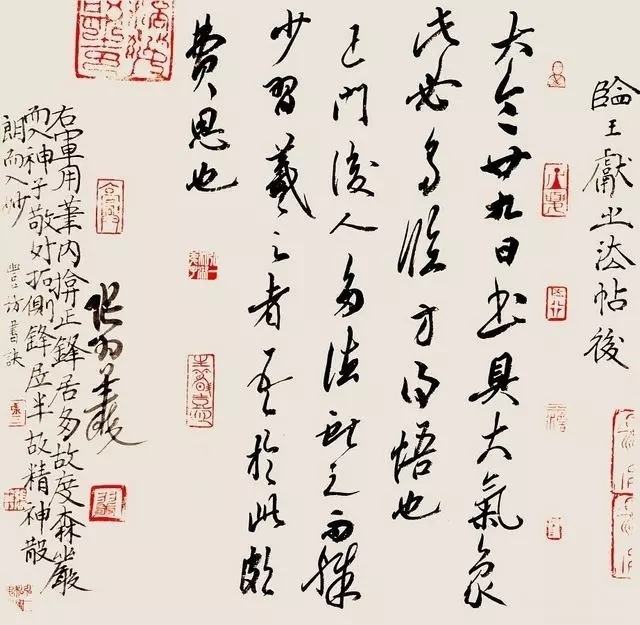 臨王獻之法帖後
大令廿九日書具大氣象
此必多臨方得悟也
王門後人多法獻之而殊
少習羲之者吾於此頗
費思也
右軍用筆內擫正鋒居多故度森嚴
而入神子敬好拓側鋒居半故精神散
朗而入妙 豐坊書訣